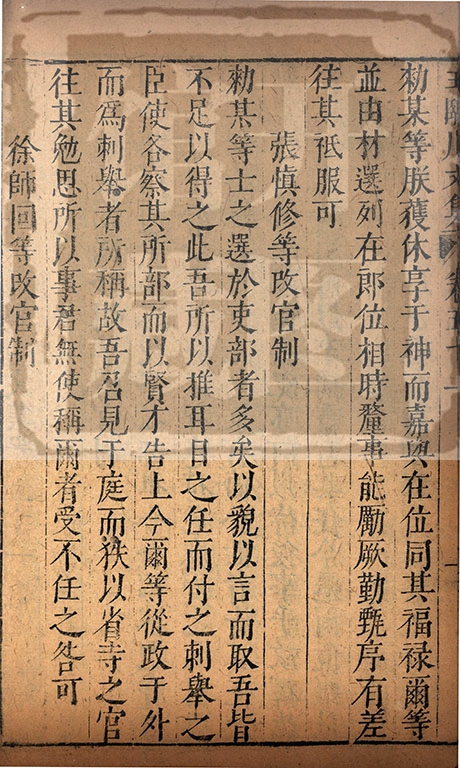 王臨川文集 卷五十
勑某等朕獲休享于神而嘉與在位同其福祿爾等
並由材選列在郎位相時釐事能勵厥勤甄序有差
往其祗服可
張慎修等改官制
勑某等士之選於吏部者多矣以貌以言而取吾皆
不足以得之此吾所以推耳目之任而付之刺舉之
臣使各察其所部而以賢才告上今爾等從政于外
而爲刺舉者所稱故吾召見于庭而秩以省寺之官
往其勉思所以事君無使稱爾者受不任之咎可
徐師回等改官制